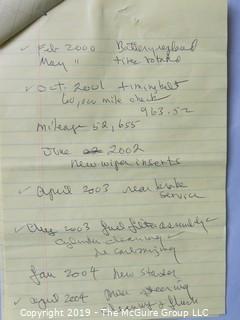 ✓ Feb 2000 Battery replaced
May " tire rotated
✓ Oct. 2001 timing belt
60,000 mile check
963.52
mileage 52,655
June 2002
new wiper inserts
✓ April 2003 rear brake
service
✓ Aug 2003 fuel filter assembly
cleaning
decarbonizing
Jan 2004 new starter
✓ April 2004 Power steering
& flush
Copyright 2019 - The McGuire Group LLC